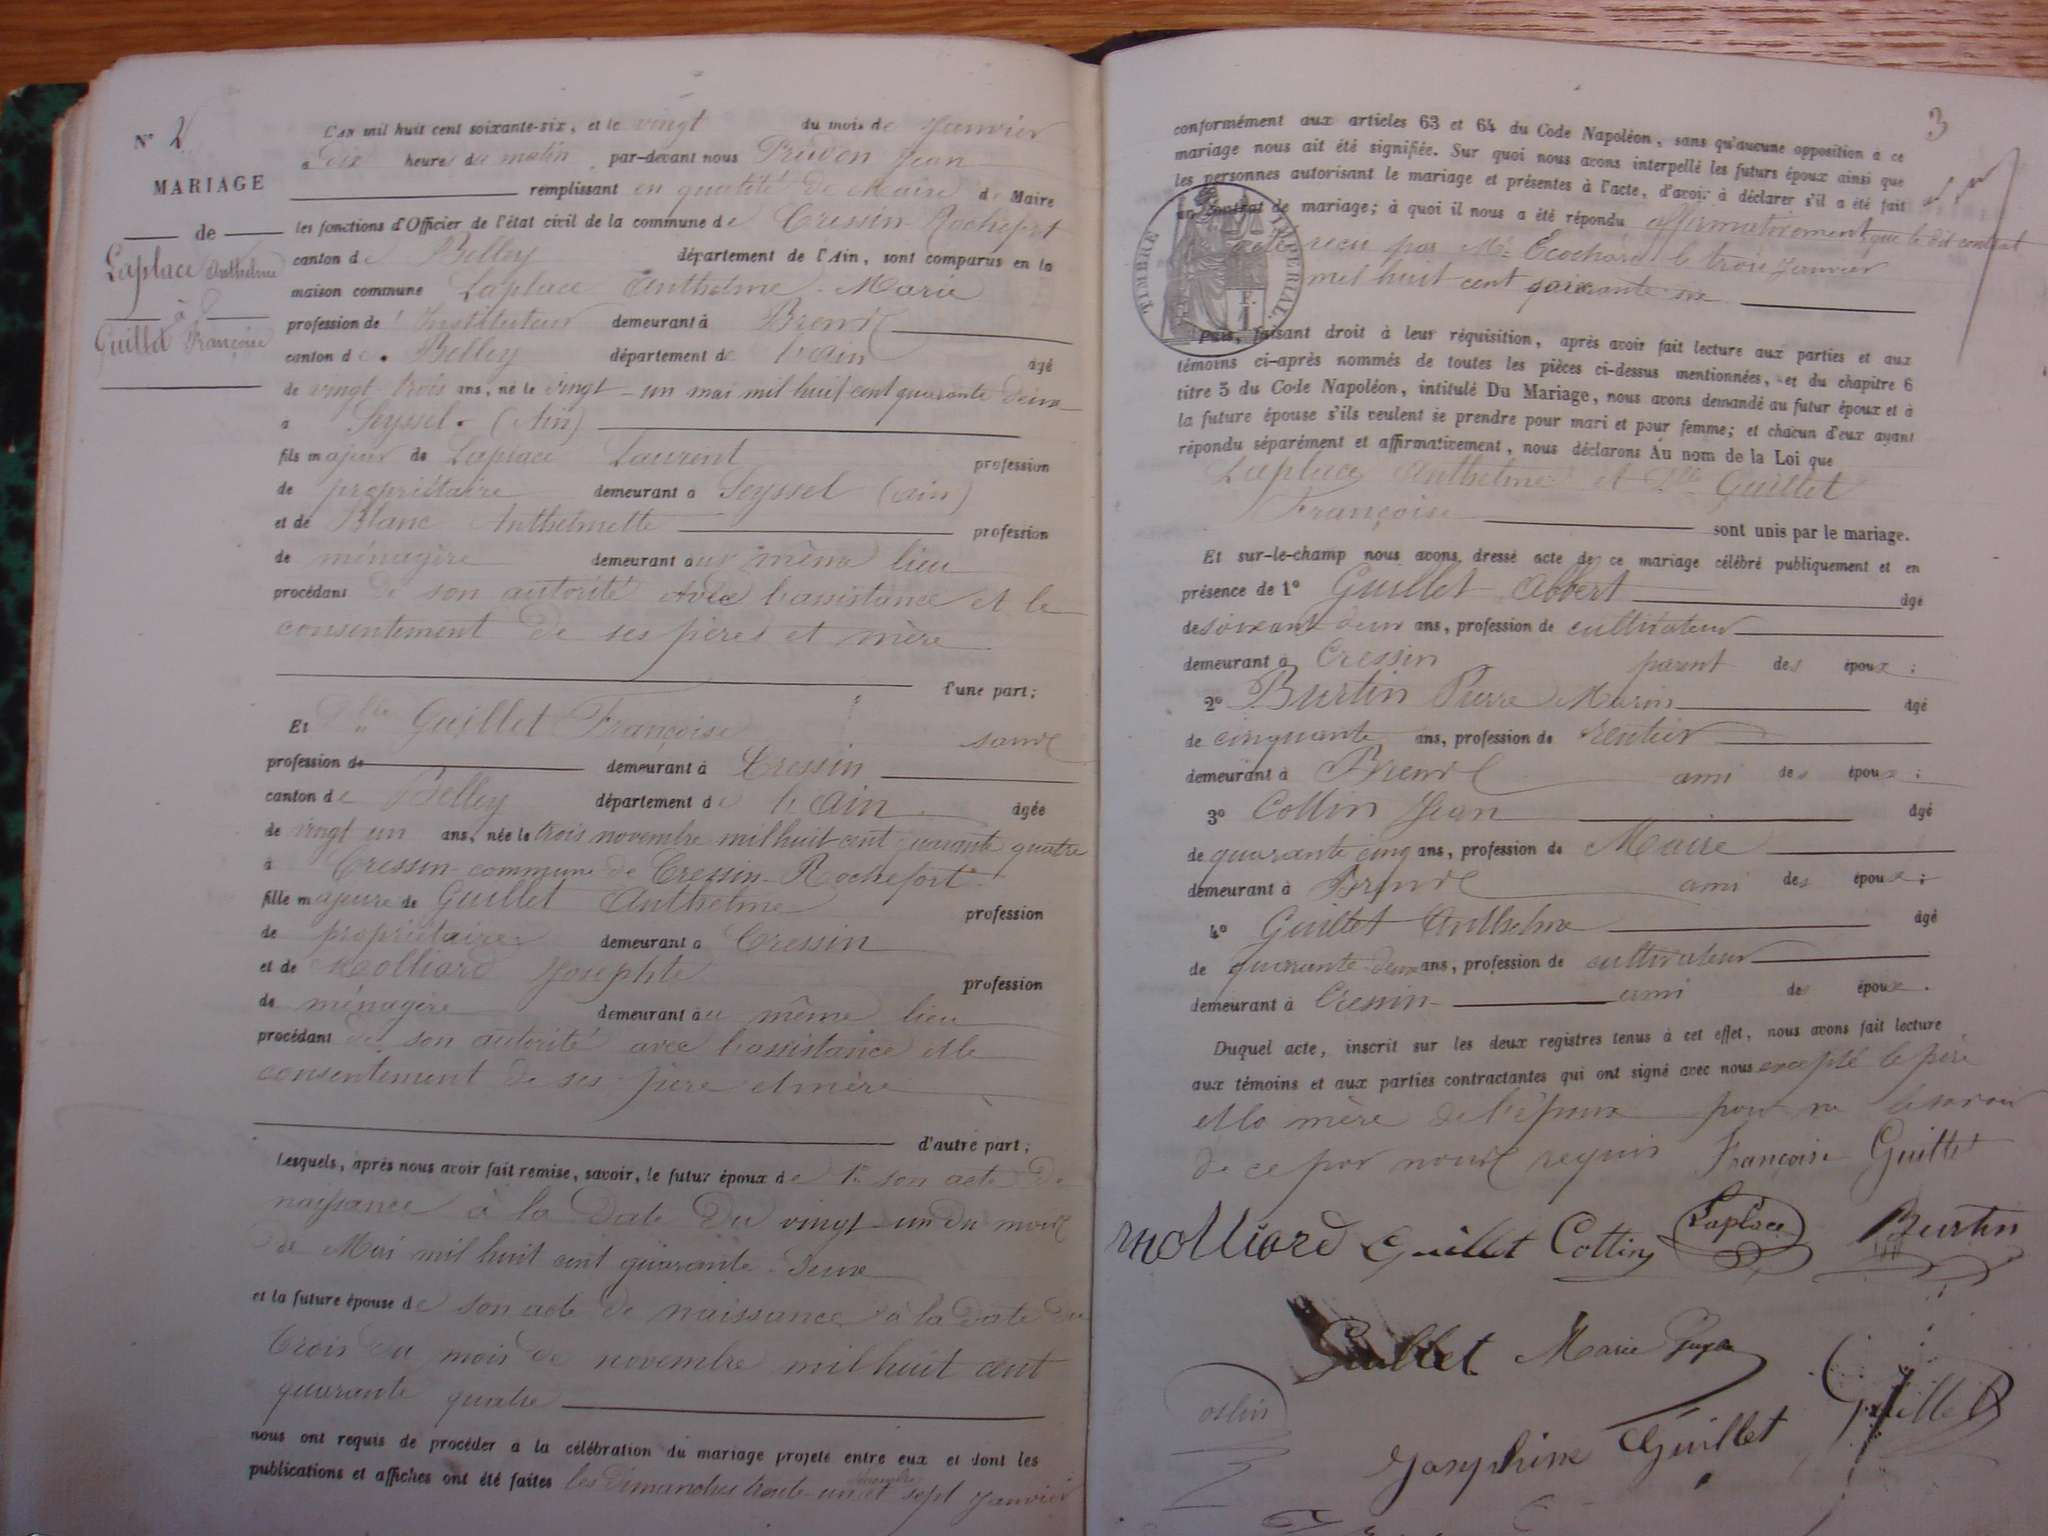 N° 2
MARIAGE
de
Laplace Anthelme
à
Guillet Françoise
L'an mil huit cent soixante-six, et le vingt du mois de Janvier
a dix heures du matin, par-devant nous Jean
remplissant en qualité de Maire de Maire
les fonctions d'Officier de l'état civil de la commune de Cressin-Rochefort
canton de Belley département de l'Ain, sont comparus en la
maison commune Laplace Anthelme Marie
profession de Instituteur demeurant à
canton de Belley département de l'ain âgé
de vingt trois ans, né le vingt-un mai mil huit cent quarante deux
a Seyssel. (Ain)
fils majeur de Laplace Laurent profession
de propriétaire demeurant a Seyssel (ain)
et de Blanc Anthelmette profession
de ménagère demeurant au même lieu
procédant de son autorité avec l'assistance et le
consentement de ses pères et mère
d'une part;
Et Dlle Guillet Françoise sans
profession de demeurant à Cressin
canton de Belley département de l'Ain âgée
de vingt un ans, née le trois novembre mil huit cent quarante quatre
à Cressin commune de Cressin-Rochefort
fille majeure de Guillet Anthelme profession
de propriétaire demeurant a Cressin
et de Molliard Josephte profession
de ménagère demeurant au même lieu
procédant de son autorité avec l'assistance et le
consentement de ses père et mère
d'autre part;
Lesquels, après nous avoir fait remise, savoir, le futur époux de 1° son acte de
naissance à la date du vingt-un du mois
de Mai mil huit cent quarante-deux
et la future épouse de son acte de naissance à la date du
trois du mois de novembre mil huit cent
quarante quatre
nous ont requis de procéder à la célébration du mariage projeté entre eux et dont les
publications et affiches ont été faites les dimanches trente-un décembre et sept Janvier
3
conformément aux articles 63 et 64 du Code Napoléon, sans qu'aucune opposition à ce
mariage nous ait été signifiée. Sur quoi nous avons interpellé les futurs époux ainsi que
les personnes autorisant le mariage et présentes à l'acte, d'avoir à déclarer s'il a été fait
un contrat de mariage; à quoi il nous a été répondu affirmativement que le dit contrat
a été reçu par Me Ecochard le trois Janvier
mil huit cent soixante six
TIMBRE IMPÉRIAL
F.
1
Puis, faisant droit à leur réquisition, après avoir fait lecture aux parties et aux
témoins ci-après nommés de toutes les pièces ci-dessus mentionnées, et du chapitre 6
titre 5 du Code Napoléon, intitulé Du Mariage, nous avons demandé au futur époux et à
la future épouse s'ils veulent se prendre pour mari et pour femme; et chacun d'eux ayant
répondu séparément et affirmativement, nous déclarons Au nom de la Loi que
Laplace Anthelme et Dlle Guillet
Françoise sont unis par le mariage.
Et sur-le-champ nous avons dressé acte de ce mariage célébré publiquement et en
présence de 1° Guillet Albert âgé
de soixante deux ans, profession de cultivateur
demeurant à Cressin parent des époux;
2° Burtin Pierre Marin âgé
de cinquante ans, profession de rentier
demeurant à ami des époux;
3° Cottin Jean âgé
de quarante cinq ans, profession de Maire
demeurant à ami des époux;
4° Guillet Anthelme âgé
de quarante-deux ans, profession de cultivateur
demeurant à Cressin ami des époux.
Duquel acte, inscrit sur les deux registres tenus à cet effet, nous avons fait lecture
aux témoins et aux parties contractantes qui ont signé avec nous excepté le père
et la mère de l'époux pour ne le savoir
de ce par nous requis Françoise Guillet
Molliard Guillet Cottin Laplace Burtin
Guillet Marie
Josephine Guillet Guillet